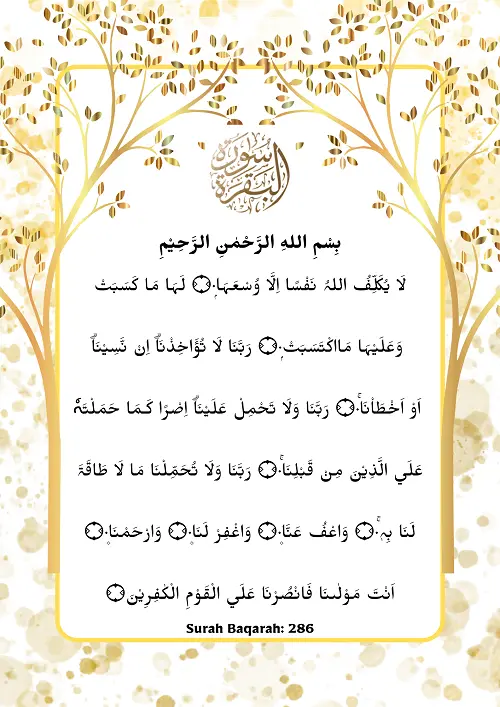 سورة البقرة
بِسْمِ اللهِ الرَّحْمٰنِ الرَّحِيْمِ
لَا يُكَلِّفُ اللهُ نَفْسًا اِلَّا وُسْعَهَا ۭ لَهَا مَا كَسَبَتْ
وَعَلَيْهَا مَااكْتَسَبَتْ ۭ رَبَّنَا لَا تُؤَاخِذْنَآ اِنْ نَّسِيْنَآ
اَوْ اَخْطَاْنَا ۚ رَبَّنَا وَلَا تَحْمِلْ عَلَيْنَآ اِصْرًا كَمَا حَمَلْتَهٗ
عَلَي الَّذِيْنَ مِنْ قَبْلِنَا ۚ رَبَّنَا وَلَا تُحَمِّلْنَا مَا لَا طَاقَةَ
لَنَا بِهٖ ۚ وَاعْفُ عَنَّا ۪ وَاغْفِرْ لَنَا ۪ وَارْحَمْنَا ۪
اَنْتَ مَوْلٰىنَا فَانْصُرْنَا عَلَي الْقَوْمِ الْكٰفِرِيْنَ ۝
Surah Baqarah: 286